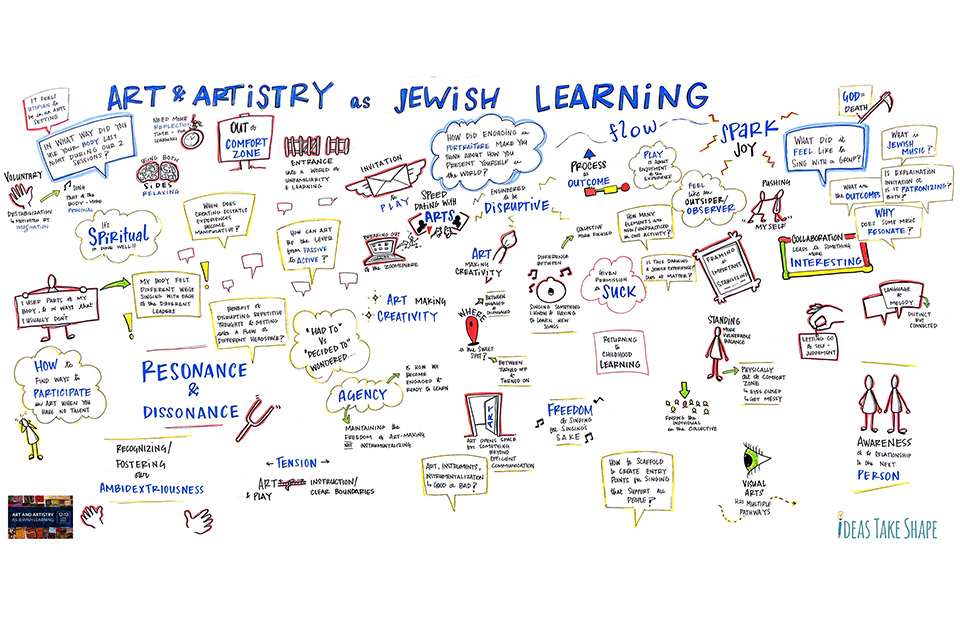 ART & ARTISTRY as JEWISH LEARNING
IT FEELS
UTOPIAN to
be in an ARTS
SETTING
IN WHAT WAY DID YOU
USE YOUR BODY LAST
NIGHT DURING OUR 2
SESSIONS?
NEED MORE
REFLECTION
TIME - FOR
LEARNING
OUT of
COMFORT
ZONE
ENTRANCE
into a WORLD of
UNFAMILIARITY
& LEARNING
INVITATION
to PLAY
HOW DID ENGAGING in
PORTRAITURE MAKE YOU
THINK ABOUT HOW YOU
PRESENT YOURSELF in
the WORLD?
flow
SPARK
JOY
GOD=
DEATH
PROCESS
as
OUTCOME
PLAY is about
ENJOYMENT
of the
EXPERIENCE
WHAT DID it
FEEL LIKE to
SING WITH a GROUP?
WHAT is
JEWISH
MUSIC?
VOLUNTARY
DESTABILIZATION
MOTIVATED by
IMAGINATION
SING
PART of the
BODY - MORE
PERSONAL
USING BOTH
SIDES
RELAXING
SPEED
DATING WITH
ARTS
ENGINEERED
to be
DISRUPTIVE
FEEL
LIKE an
OUTSIDER/
OBSERVER
PUSHING
MYSELF
WHAT are
the OUTCOMES?
IS EXPLANATION
INVITATION or
is it PATRONIZING?
BOTH?
WHY
DOES SOME MUSIC
RESONATE?
IT'S
SPIRITUAL
if DONE WELL!!
WHEN DOES
CREATING ECSTATIC
EXPERIENCES
BECOME
MANIPULATIVE?
HOW CAN ART
BE the LEVER
from PASSIVE
to ACTIVE?
BREAKING OUT
of the ZOOMSPHERE
ART
MAKING
CREATIVITY
COLLECTIVE
MORE FOCUSED
HOW MANY
ELEMENTS are
NEW/UNPRACTICED
in ONE ACTIVITY?
COLLABORATION
LEADS to SOMETHING
MORE
INTERESTING
DIFFERENCE
BETWEEN
SINGING SOMETHING
I KNOW & HAVING to
LEARN NEW
SONGS
GIVEN
PERMISSION
to SUCK
FRAMING is
IMPORTANT
STABILIZING
I USED PARTS of MY
BODY, & in WAYS that
I USUALLY DON'T
MY BODY FELT
DIFFERENT WHILE
SINGING WITH EACH
of the DIFFERENT
LEADERS
BENEFIT of
DISRUPTING REPETITIVE
THOUGHTS & GETTING
into a FLOW or
DIFFERENT HEADSPACE?
ART MAKING
CREATIVITY
"HAD TO"
VS
"DECIDED TO"
WONDERED...
WHERE
is the SWEET
SPOT?
BETWEEN
ENGAGED &
DISENGAGED
BETWEEN
TURNED OFF &
TURNED ON
RETURNING
to CHILDHOOD
LEARNING
STANDING
MORE
VULNERABLE
BALANCE
PHYSICALLY
OUT of COMFORT
ZONE
w/EYES CLOSED
GET MESSY
LETTING GO
of SELF-
JUDGEMENT
LANGUAGE
& MELODY
DISTINCT
BUT
CONNECTED
HOW to
FIND WAYS to
PARTICIPATE
in ART WHEN YOU
HAVE NO TALENT
RESONANCE
&
DISSONANCE
AGENCY
IS HOW WE
BECOME
ENGAGED &
READY to LEARN
MAINTAINING the
FREEDOM of ART-MAKING
NOT INSTRUMENTALIZING
ART
ART OPENS SPACE
for SOMETHING
BEYOND
EFFICIENT
COMMUNICATION
FREEDOM
of SINGING
for SINGING'S
SAKE
FINDING the
INDIVIDUAL
in the COLLECTIVE
AWARENESS
of the RELATIONSHIP
to the NEXT
PERSON
RECOGNIZING/
FOSTERING
our
AMBIDEXTRIOUSNESS
TENSION
ART
& PLAY
INSTRUCTION/
CLEAR BOUNDARIES
ART, INSTRUMENTS,
INSTRUMENTALIZATION
is GOOD or BAD?
HOW to SCAFFOLD
to CREATE ENTRY
POINTS for SINGING
that SUPPORT ALL
PEOPLE?
VISUAL
ARTS
HAS MULTIPLE
PATHWAYS
ART AND ARTISTRY
AS JEWISH LEARNING
12-13
iDEAS TAKE SHAPE